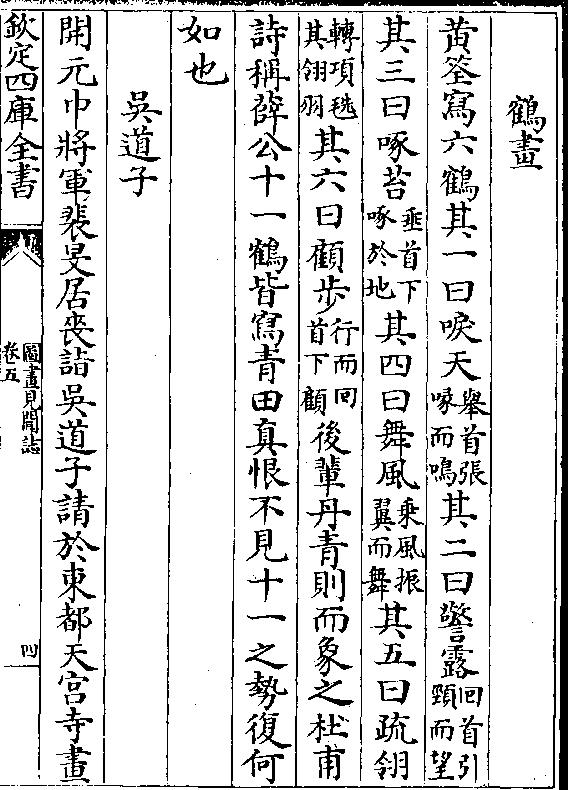 鶴畫
黃筌寫六鶴其一曰唳天舉首張喙而鳴其二曰警露回首引頸而望
其三曰啄苔垂首下啄於地其四曰舞風乘風振翼而舞其五曰疏翎
轉項毨其翎羽其六曰顧步行而回首下顧後輩丹青則而象之杜甫
詩稱薛公十一鶴皆寫青田真恨不見十一之勢復何
如也
吳道子
開元中將軍裴旻居喪詣吳道子請於東都天宮寺畫
欽定四庫全書
圖畫見聞誌
卷五
四